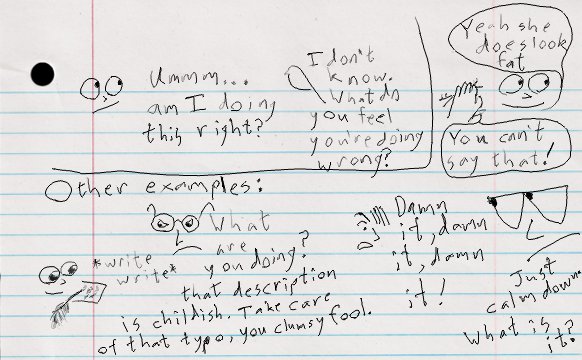 Ummm...
am I doing
this right?
I don't
know.
What do
you feel
you're doing
wrong?
Yeah she
does look
fat
You can't
say that!
Other examples:
*write
write*
What
are
you doing?
that description
is childish. Take care
of that typo, you clumsy fool.
Damn
it, damn
it, damn
it!
Just
calm down
What is
it?